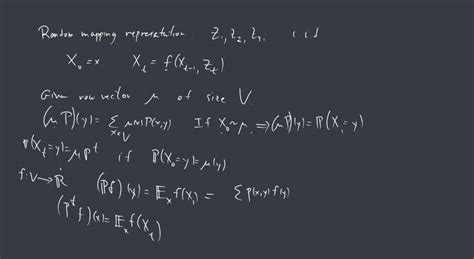 Random mapping representation Z₁, Z₂, Z₃, iid
X₀ = x. X_t = f(X_{t-1}, Z_t)
Given row vector μ of size V
(μP)(y) = Σ_{x∈V} μ(x)P(x,y) If X₀~μ, ⇒ (μP)(y) = ℙ(X₁=y)
ℙ(X_t=y) = μP^t if ℙ(X₀=y) = μ(y)
f: V → ℝ (Pf)(x) = 𝔼_x f(X₁) = Σ p(x,y) f(y)
(P^t f)(x) = 𝔼_x f(X_t)